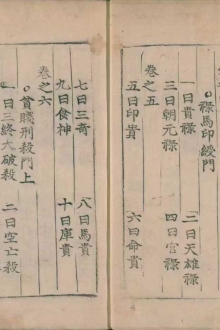 ○祿馬印綬門
一曰貴祿 二曰天雄祿
三曰朝元祿 四曰官祿
卷之五
五曰印貴 六曰命貴
七曰三奇 八曰馬貴
九曰食神 十曰庫貴
卷之六
○貧賤刑殺門上
一曰三終大破殺 二曰空亡殺